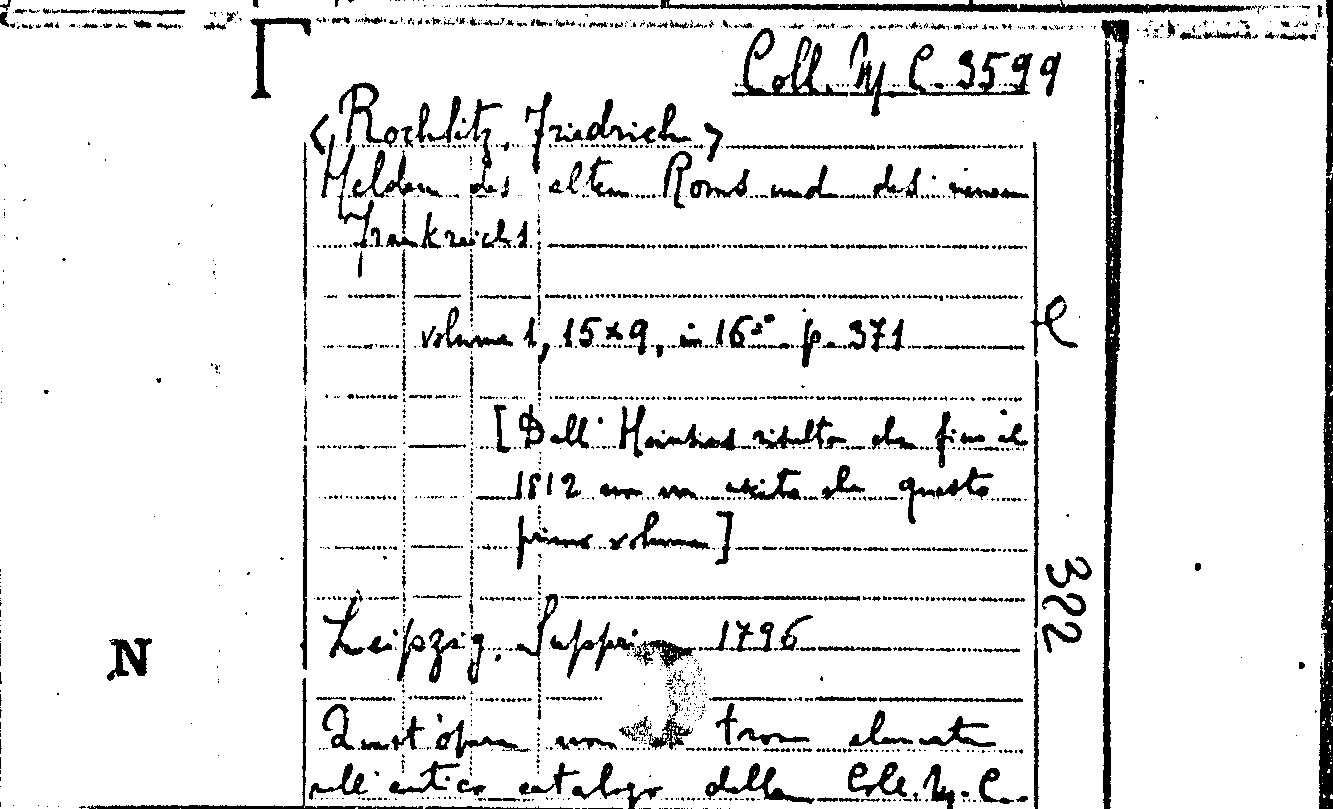 Coll. M. C. 3599
<Rochlitz, Friedrich>
Helden des alten Roms und des neuen
Frankreichs
volume 1, 15x9, in 16º p. 371
[Dall' Heinsius risulta che fino il
1812 non era uscito che questo
primo volume]
322
Leipzig. 1796
N
Quest'opera non trova elencata
nell'antico catalogo della Coll. M. C.